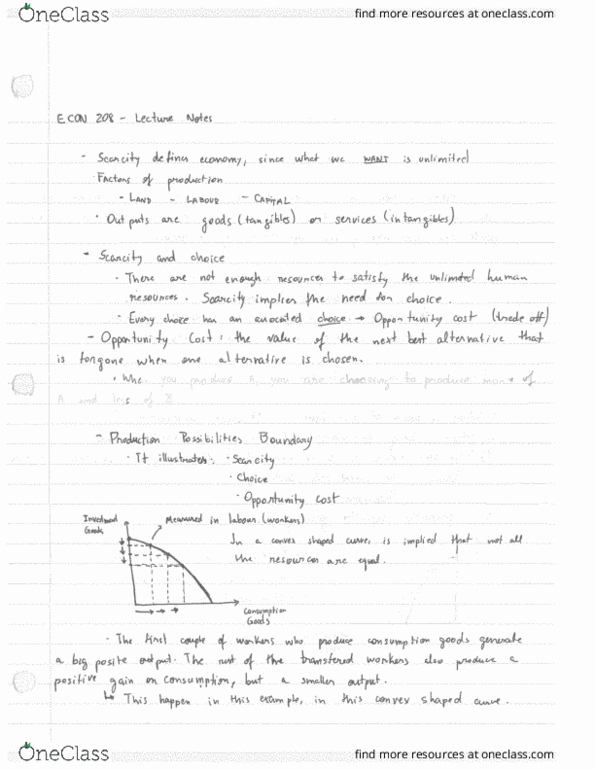 OneClass
find more resources at oneclass.com
ECON 208 - Lecture Notes
- Scarcity defines economy, since what we WANT is unlimited
· Factors of production
- LAND - LABOUR - CAPITAL
· Outputs are goods (tangibles) or services (intangibles)
- Scarcity and choice
· There are not enough resources to satisfy the unlimited human
resources. Scarcity implies the need for choice.
· Every choice has an associated choice → Opportunity cost (trade off)
- Opportunity Cost: the value of the next best alternative that
is forgone when one alternative is chosen.
· When you produce A, you are choosing to produce more of
A and less of B
- Production Possibilities Boundary
· It illustrates: · Scarcity
· Choice
· Opportunity cost
Investment
Goods
Measured in labour (workers)
In a convex shaped curve, is implied that not all
the resources are equal.
Consumption
Goods
· The first couple of workers who produce consumption goods generate
a big posite output. The rest of the transfered workers also produce a
positive gain on consumption, but a smaller output.
↳ This happen in this example, in this convex shaped curve.
OneClass
find more resources at oneclass.com